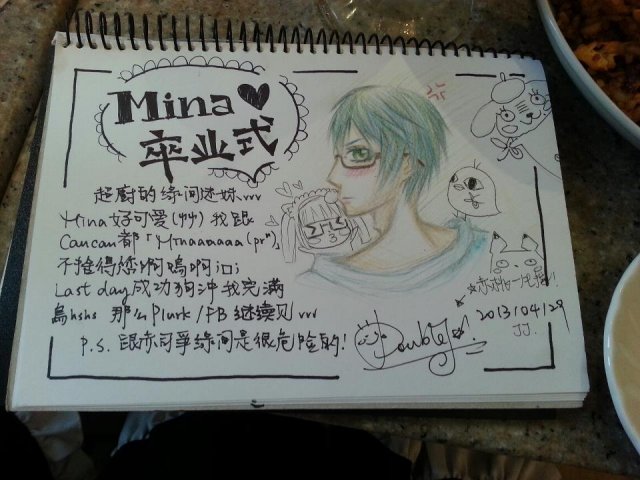 Mina♥
卒业式
超廚的绿间迷妹vvv
Mina好可愛(艸) 我跟
Cancan都「Minaaaaaa(pr")」
不捨得您啊嗚啊ioi
Last day成功狗冲我完满
烏hshs 那么Plurk/FB继续见vvv
P.S. 跟赤司爭绿间是很危险的!
DoubleJ
2013/04/29
JJ.